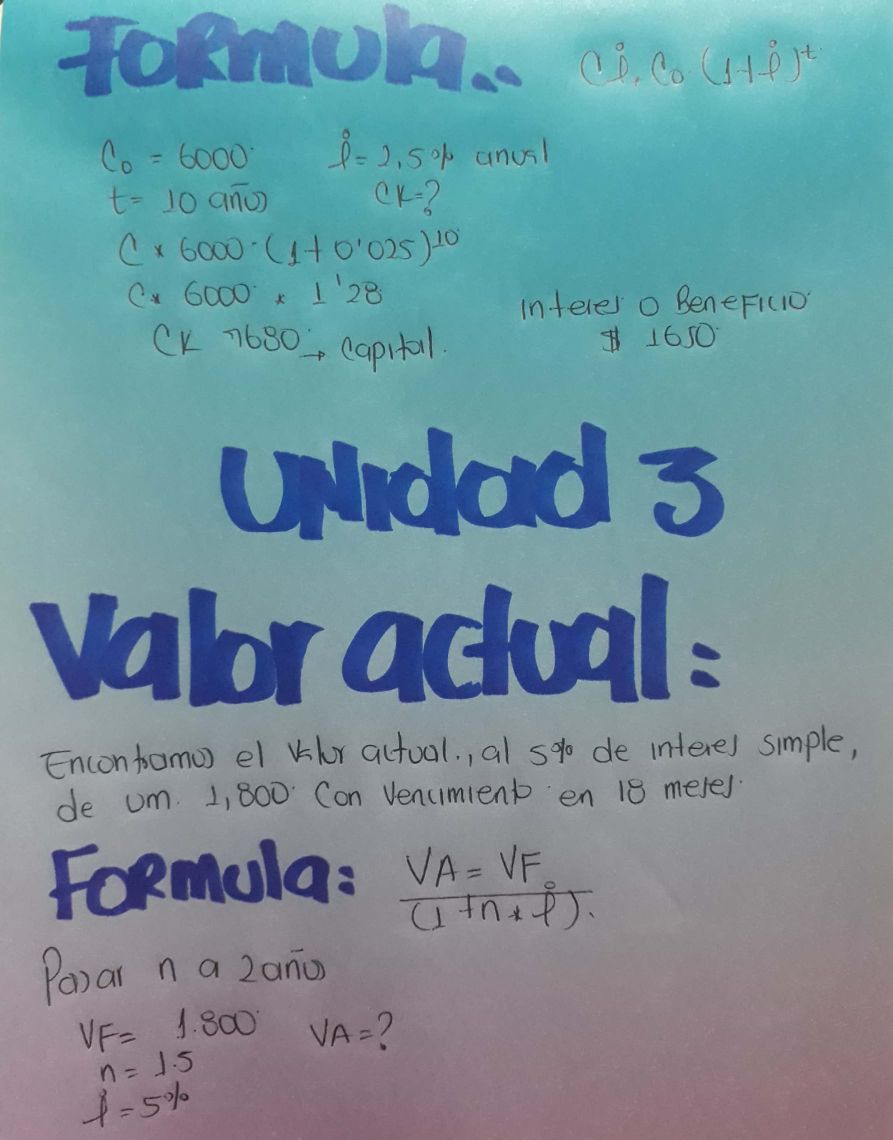 Formula.. Ci, Co (1+i)^t
Co = 6000 i= 2,5% anual
t= 10 años CK=?
C * 6000 · (1+0'025)^10
C* 6000 * 1'28
Interes o Beneficio
CK 7680 → Capital.
$ 1650
Unidad 3
Valor actual:
Encontramos el Valor actual., al 5% de interes simple,
de um. 1,800 Con Vencimiento en 18 meses.
Formula: VA = VF
(1+n*i).
Pasar n a 2 años
VF= 1.800 VA=?
n= 1.5
i=5%